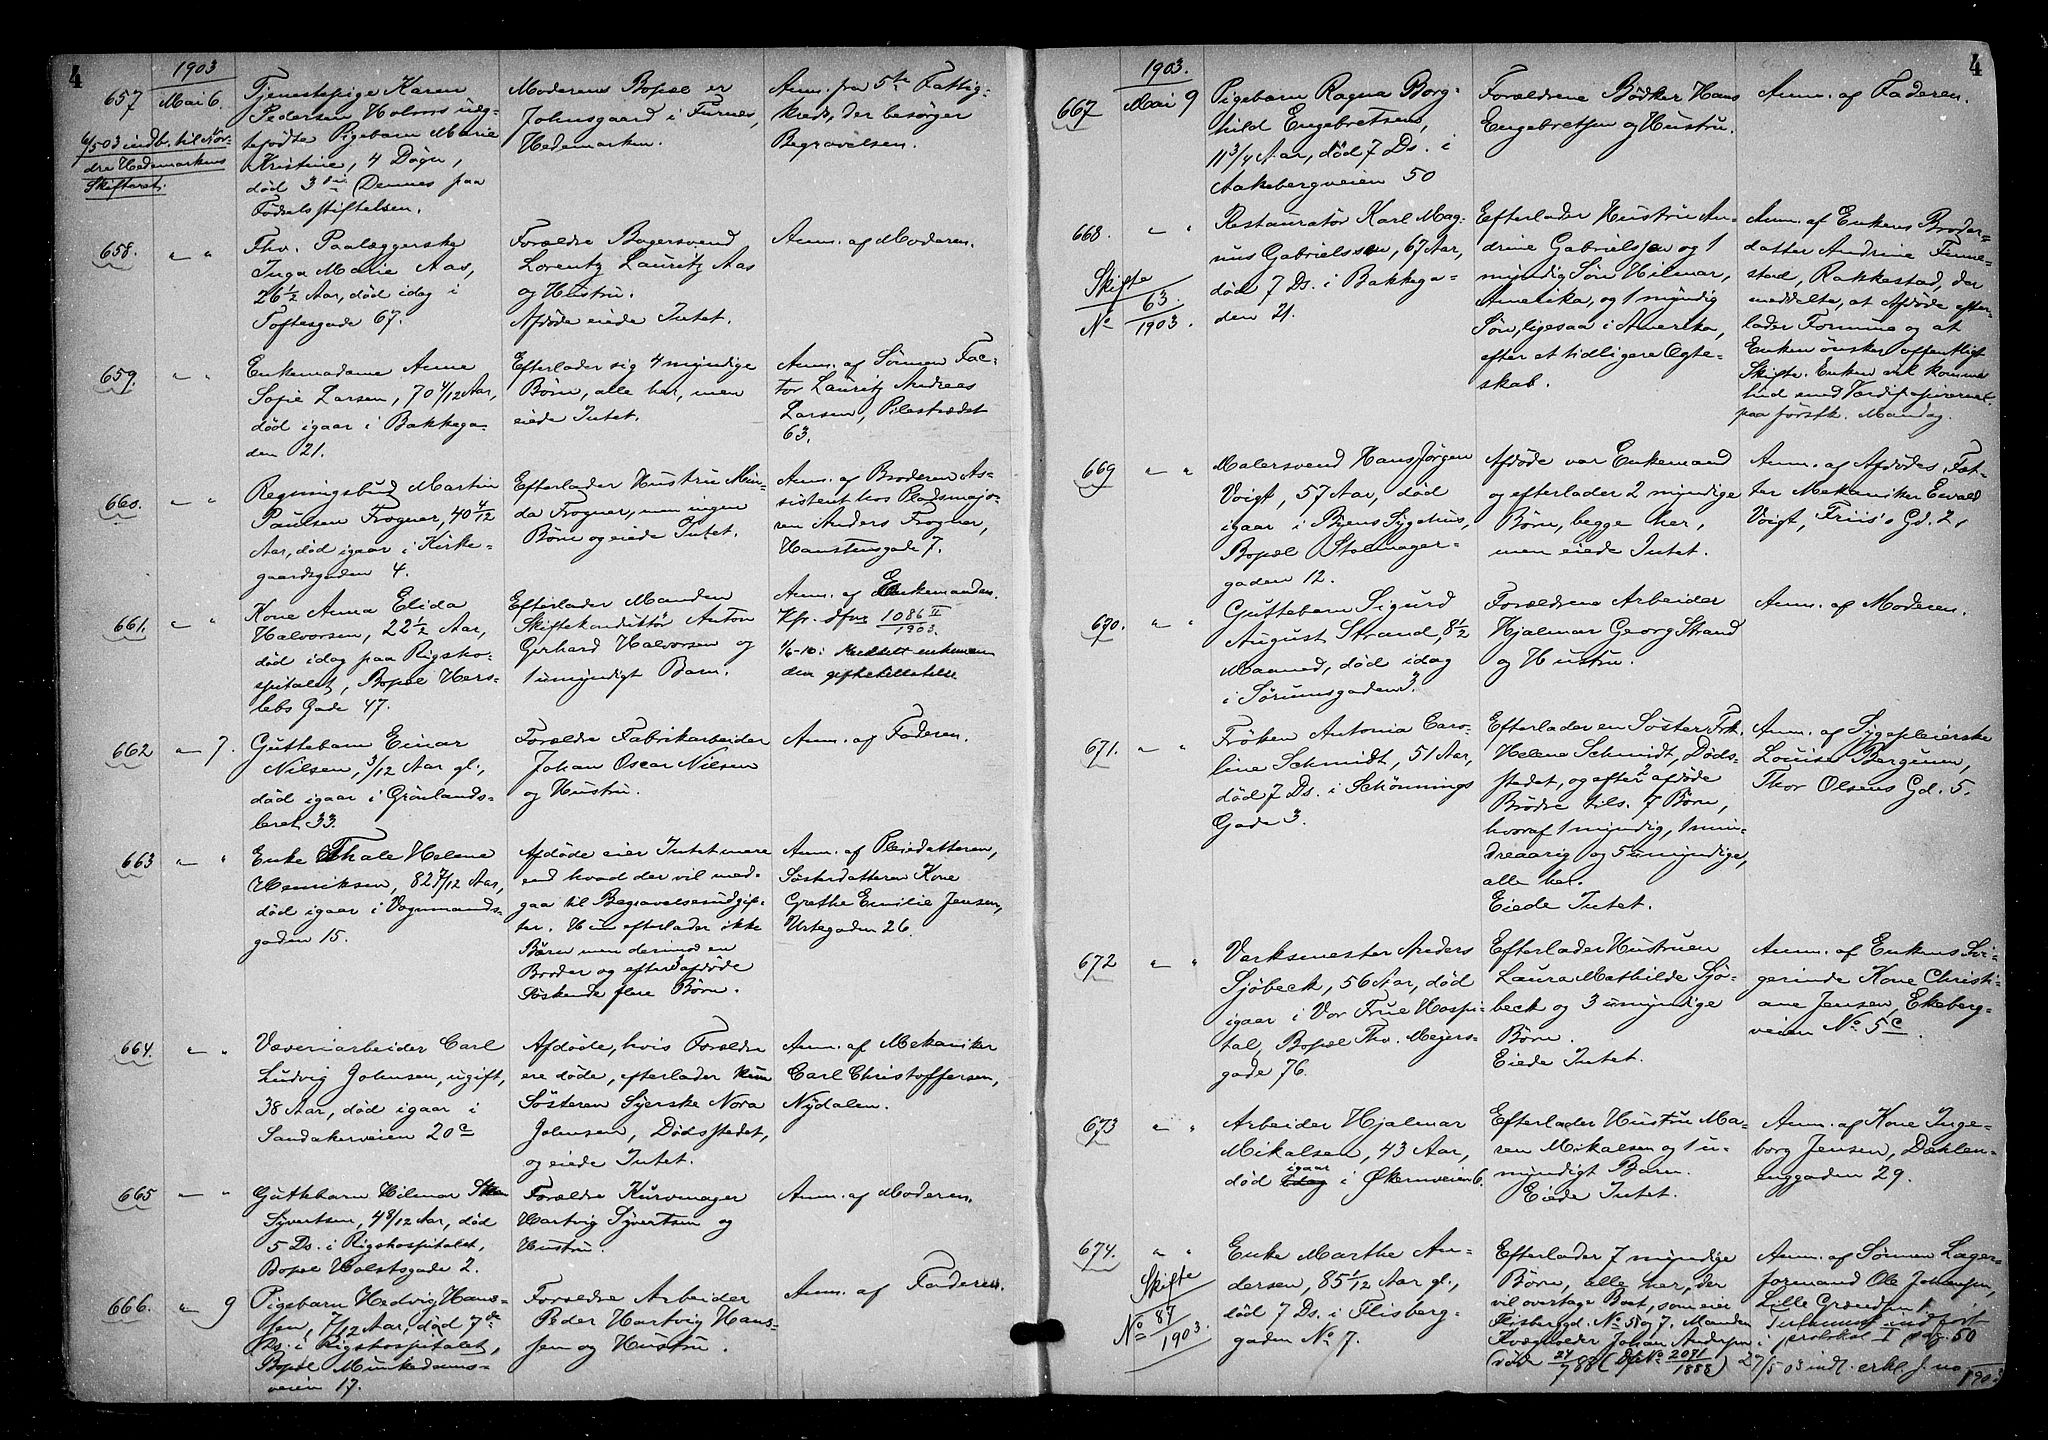 4
1903
657
Mai 6.
Tjenestepige Karen
Pedersen Holmos uæg-
tefødte Pigebarn Marie
Kristine, 4 Døgn,
død 3die Dennes paa
Fødselsstiftelsen.
Moderens Bopæl er
Johnsgaard i Furnes,
Hedemarken.
Anm. fra 5te Fattig-
kreds, der besørger
Begravelsen.
6/5 03 indb. til Nor-
dre Hedemarkens
Skifteret.
658.
" "
Thv. Paalæggerske
Inga Marie Aas,
26 1/2 Aar, død idag i
Toftesgade 67.
Forældre Bagersvend
Lorentz Lauritz Aas
og Hustru.
Afdøde eiede Intet.
Anm. af Moderen.
659.
" "
Enkemadame Anne
Sofie Larsen, 70 4/12 Aar,
død igaar i Bakkega-
den 21.
Efterlader sig 4 myndige
Børn, alle her, men
eiede Intet.
Anm. af Sønnen Fac-
tor Lauritz Andreas
Larsen, Pilestrædet
63.
660.
" "
Regningsbud Martin
Paulsen Frogner, 40 4/12
Aar, død igaar i Kirke-
gaardsgaden 4.
Efterlader Hustru Min-
da Frogner, men ingen
Børn og eiede Intet.
Anm. af Broderen As-
sistent hos Pladsmajo-
ren Anders Frogner,
Hanstensgade 7.
661.
" "
Kone Anna Elida
Halvorsen, 22 1/2 Aar,
død idag paa Rigsho-
spitalet, Bopæl Hers-
lebs Gade 47.
Efterlader Manden
Skiftekonduktør Anton
Gerhard Halvorsen og
1 umyndigt Barn.
Anm. af Enkemanden.
Kfr. dfnr 1086 II/1903.
1/6-10: Meddelt enkeman
den giftetilladelse
662
" 7.
Guttebarn Einar
Nilsen, 3/12 Aar gl.,
død igaar i Grønlands-
leret 33.
Forældre Fabrikarbeider
Johan Oscar Nilsen
og Hustru.
Anm. af Faderen.
663
" "
Enke Thale Helene
Henriksen, 82 7/12 Aar,
død igaar i Vognmands-
gaden 15.
Afdøde eier Intet mere
end hvad der vil med-
gaa til Begravelsesudgif-
ter. Hun efterlader ikke
Børn men derimod en
Broder og efter 3 afdøde
Søskende flere Børn.
Anm. af Pleiedatteren,
Søsterdatteren Kone
Grethe Emilie Jensen,
Urtegaden 26.
664.
" "
Væveriarbeider Carl
Ludvig Johnsen, ugift,
38 Aar, død igaar i
Sandakerveien 20c
Afdøde, hvis Forældre
ere døde, efterlader kun
Søsteren Syerske Nora
Johnsen, Dødsstedet,
og eiede Intet.
Anm. af Mekaniker
Carl Christoffersen,
Nydalen.
665
" "
Guttebarn Hilmar
Syvertsen, 4 8/12 Aar, død
5 Ds. i Rigshospitalet,
Bopæl Holstsgade 2.
Forældre Kurvmager
Hartvig Syvertsen og
Hustru.
Anm. af Moderen.
666.
" 9
Pigebarn Hedvig Hans-
sen, 7/12 Aar, død 7de
Ds. i Rigshospitalet,
Bopæl Munkedams-
veien 17.
Forældre Arbeider
Peder Hartvig Hans-
sen og Hustru.
Anm. af Faderen.
4
1903.
667
Mai 9
Pigebarn Ragna Borg-
hild Engebretsen,
11 3/4 Aar, død 7 Ds. i
Aakebergveien 50
Forældrene Bødker Hans
Engebretsen og Hustru.
Anm. af Faderen.
668.
" "
Skifte
No 63./1903.
Restauratør Karl Mag-
nus Gabrielsen, 67 Aar,
død 7 Ds. i Bakkega-
den 21.
Efterlader Hustru An-
drine Gabrielsen og 1
myndig Søn Hilmar,
Amerika, og 1 myndig
Søn, ligesaa i Amerika,
efter et tidligere Ægte-
skab.
Anm. af Enkens Broder-
datter Andrine Finne-
stad, Rakkestad, der
meddelte, at Afdøde efter-
lader Formue og at
Enken ønsker offentligt
Skifte. Enken vil komme
hid med Værdipapirerne
paa førstk. Mandag.
669
" "
Malersvend Hans Jørgen
Voigt, 57 Aar, død
igaar i Byens Sygehus,
Bopæl Stolmager-
gaden 12.
Afdøde var Enkemand
og efterlader 2 myndige
Børn, begge her,
men eiede Intet.
Anm. af Afdødes Fæt-
ter Mekaniker Ewald
Voigt, Friis's Gd. 2,
670.
" "
Guttebarn Sigurd
August Strand, 8 1/2
Maaned, død idag
i Sørumsgaden 3.
Forældrene Arbeider
Hjalmar Georg Strand
og Hustru.
Anm. af Moderen.
671.
" "
Frøken Antonia Caro-
line Schmidt, 51 Aar,
død 7 Ds. i Schønnings
Gade 3.
Efterlader en Søster Frk.
Helene Schmidt, Døds-
stedet, og efter 2 afdøde
Brødre tils. 7 Børn,
hvoraf 1 myndig, 1 min-
dreaarig og 5 umyndige,
alle her.
Eiede Intet.
Anm. af Sygepleierske
Louise Berguun,
Thor Olsens Gd. 5.
672
" "
Verksmester Anders
Sjøbeck, 56 Aar, død
igaar i Vor Frue Hospi-
tal, Bopæl Thv. Meyers-
gade 76.
Efterlader Hustruen
Laura Mathilde Sjø-
beck og 3 umyndige
Børn.
Eiede Intet.
Anm. af Enkens Svi-
gerinde Kone Christi-
ane Jensen, Ekeberg-
veien No 5c.
673
" "
Arbeider Hjalmar
Mikalsen, 43 Aar,
død idag igaar i Økernveien 6.
Efterlader Hustru Ma-
ren Mikalsen og 1 u-
myndigt Barn.
Eiede Intet.
Anm. af Kone Inge-
borg Jensen, Dæhlen-
enggaden 29.
674.
" "
Skifte
No 87/1903.
Enke Marthe An-
dersen, 85 1/12 Aar gl.,
død 7 Ds. i Flisberg-
gaden No 7.
Efterlader 7 myndige
Børn, alle her, der
vil overtage Boet, som eier
Flisbergd. No 5 og 7. Manden
Kvæghandler Johan Andersen
(død 24/7 88 (Dfno 2071/1888)
Anm. af Sønnen Lager-
formand Ole Johansen,
Lille Grændsen 1
protokol I pag. 50
27/5 03 indl. erkl. j. no
1903